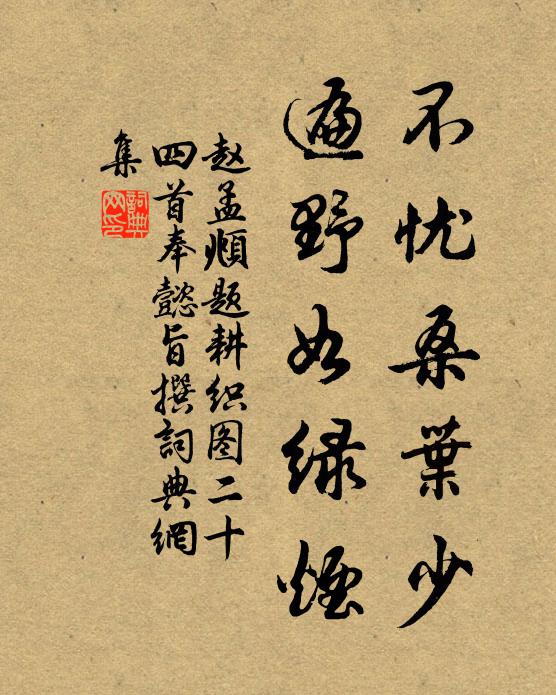 不忧桑葉少
遍野如绿煙
赵孟頫题耕织图二十
四首奉懿旨撰詞典網
集
詞典
网印